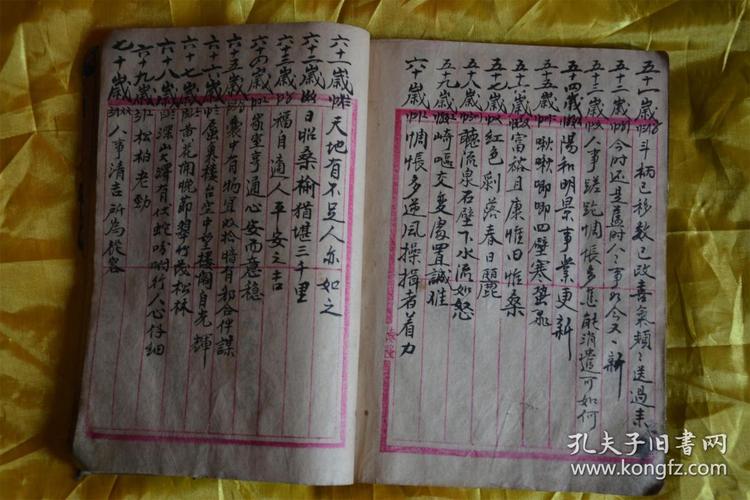 五十一歲 斗柄已移數已改喜氣頻〻送過来
五十二歲 今時还是舊时人〻事如今又一新
五十三歲 人事蹉跎惆悵多焦能消遣可如何
五十四歲 陽和明景事業更新
五十五歲 啾啾唧唧四壁寒蛩泉
五十六歲 富裕且康惟旧惟桑
五十七歲 紅色剝落春日麗
五十八歲 聽流泉石壁下水流如怒
五十九歲 崎嶇交变處置誠难
六十歲 惆悵多逆风操揖者着力
六十一歲 天地有不足人亦如之
六十二歲 日昭桑榆猶堪三千里
六十三歲 福自通人平安之吉
六十四歲 家室亨通心安而意穩
六十五歲 囊中有物宜收拾暗有邪合伴謀
六十六歲 厦裏楼台空中望楼阁自光輝
六十七歲 黃花開晚節翠竹茂松林
六十八歲 深山大澤有伏蛇吩咐行人心仔細
六十九歲 松柏老勁
七十歲 人事清吉所為從容
孔夫子旧書网
www.kongfz.com